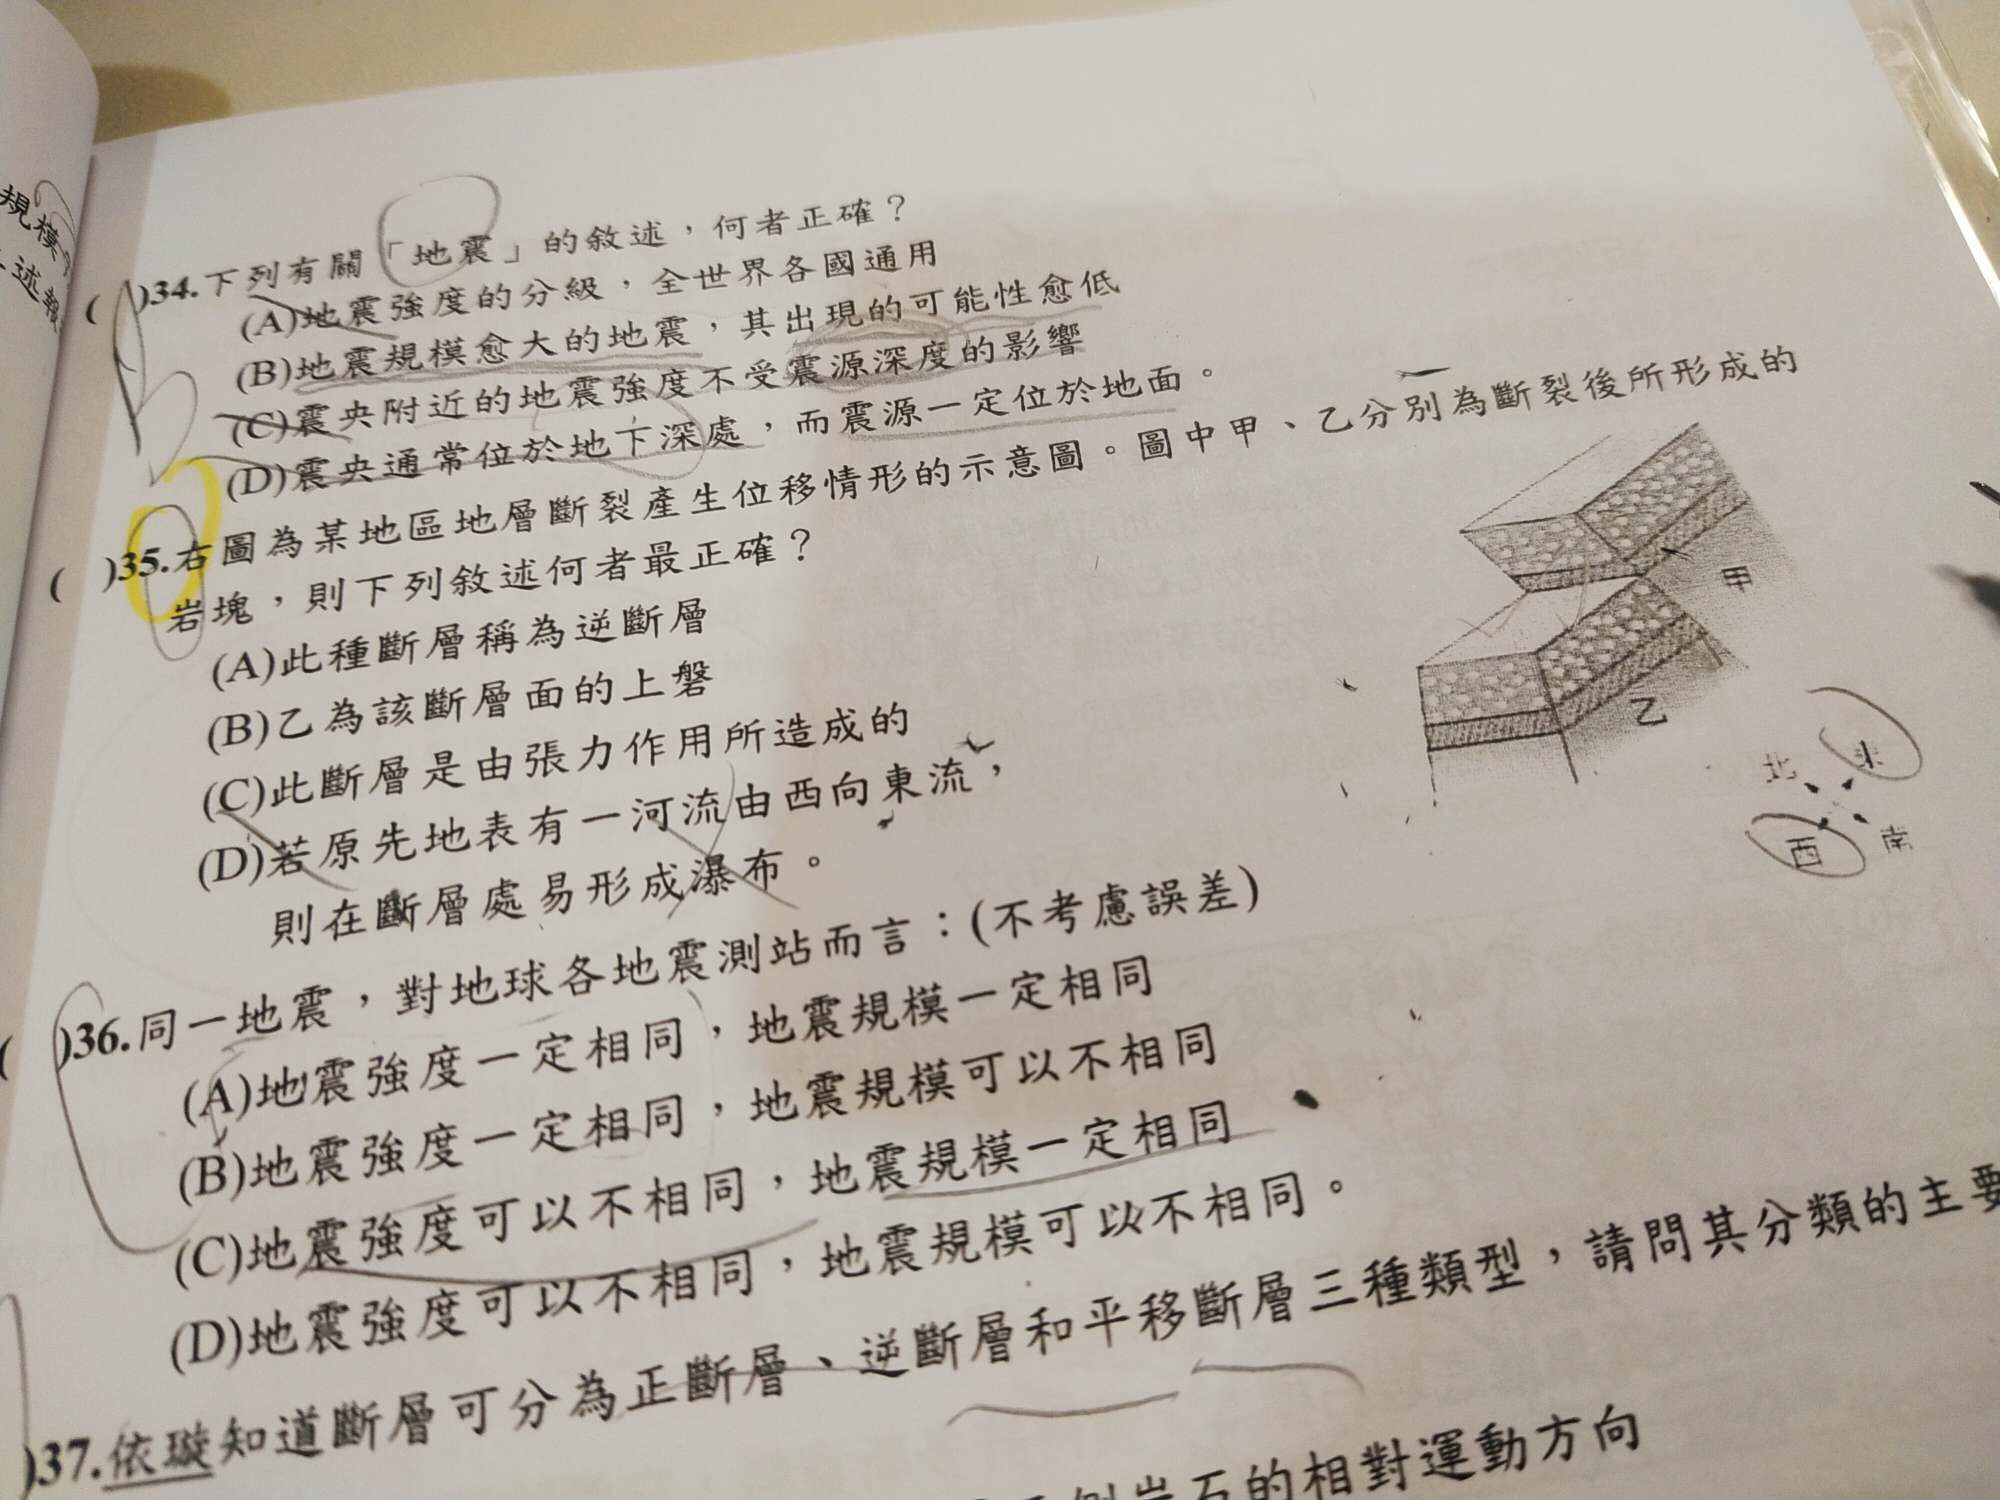 規模
述報
( )34.下列有關「地震」的敘述，何者正確？
(A)地震強度的分級，全世界各國通用
(B)地震規模愈大的地震，其出現的可能性愈低
(C)震央附近的地震強度不受震源深度的影響
(D)震央通常位於地下深處，而震源一定位於地面。
( )35.右圖為某地區地層斷裂產生位移情形的示意圖。圖中甲、乙分別為斷裂後所形成的
岩塊，則下列敘述何者最正確？
(A)此種斷層稱為逆斷層
(B)乙為該斷層面的上磐
(C)此斷層是由張力作用所造成的
(D)若原先地表有一河流由西向東流，
則在斷層處易形成瀑布。
甲
乙
北 東
西 南
( )36.同一地震，對地球各地震測站而言：(不考慮誤差)
(A)地震強度一定相同，地震規模一定相同
(B)地震強度一定相同，地震規模可以不相同
(C)地震強度可以不相同，地震規模一定相同
(D)地震強度可以不相同，地震規模可以不相同。
)37.依璇知道斷層可分為正斷層、逆斷層和平移斷層三種類型，請問其分類的主要
側岩石的相對運動方向